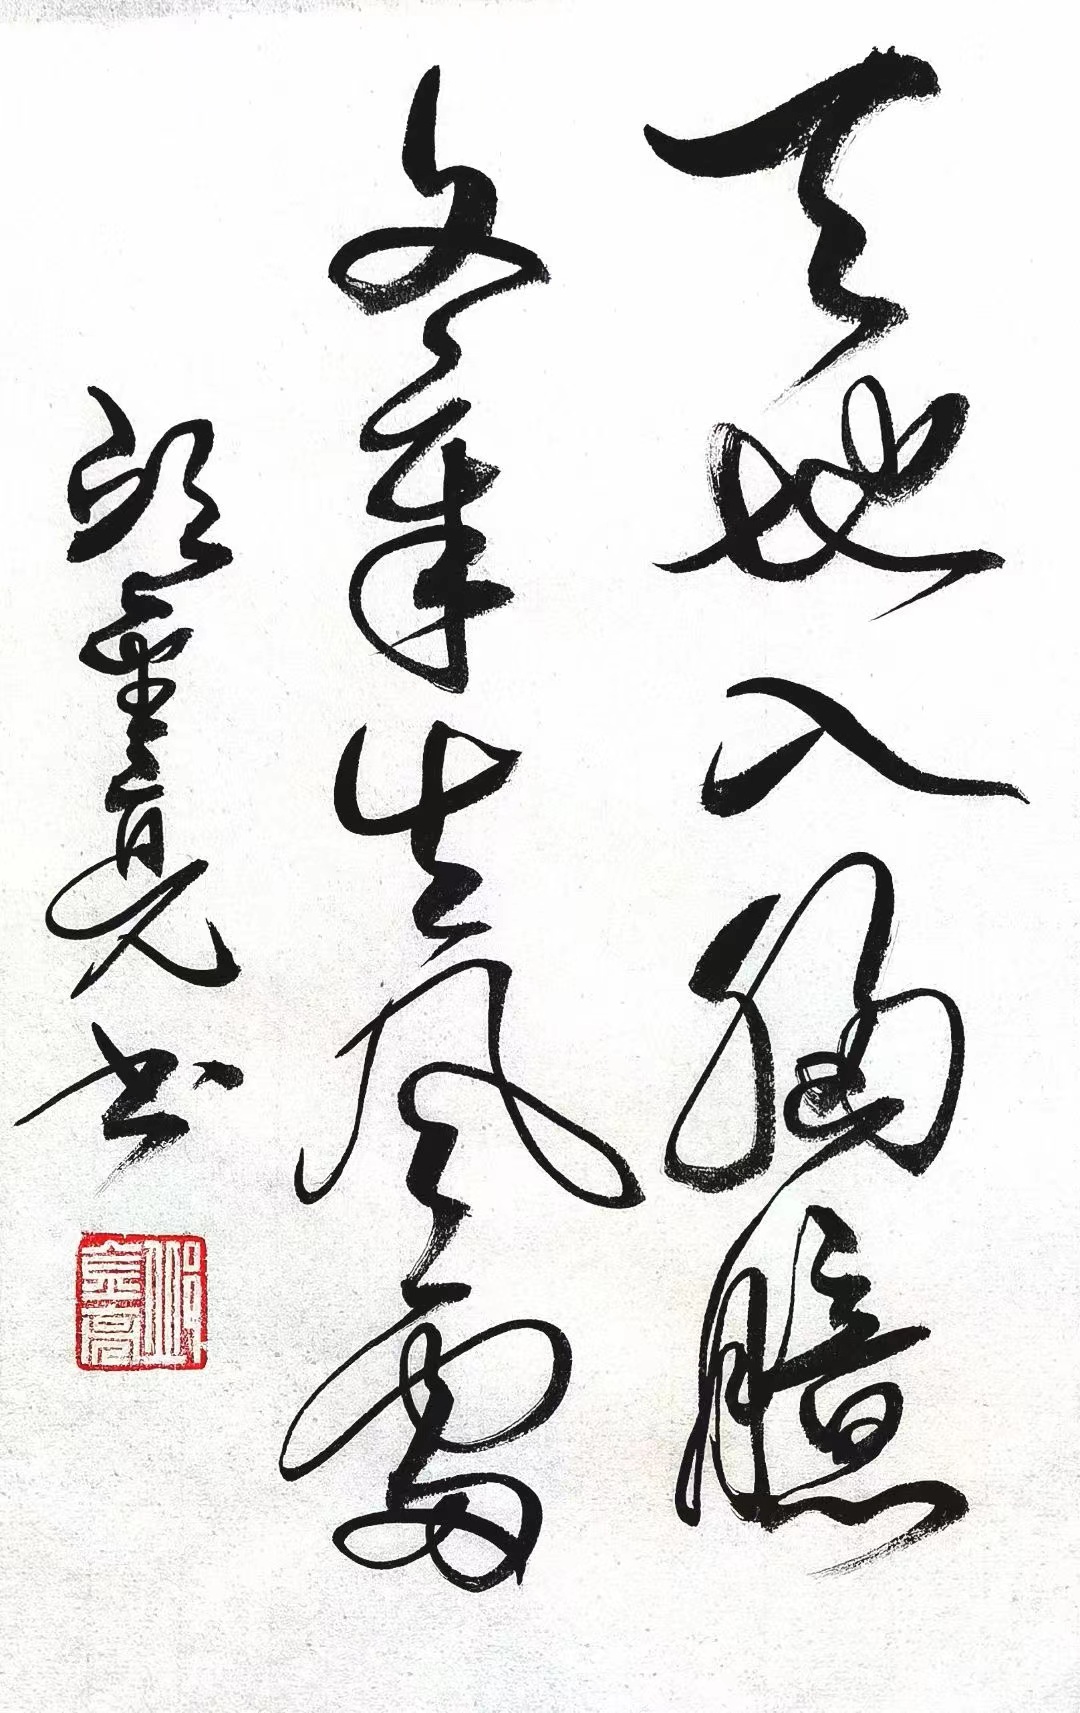 天地入胸臆
文章生风雷
邱 亮书